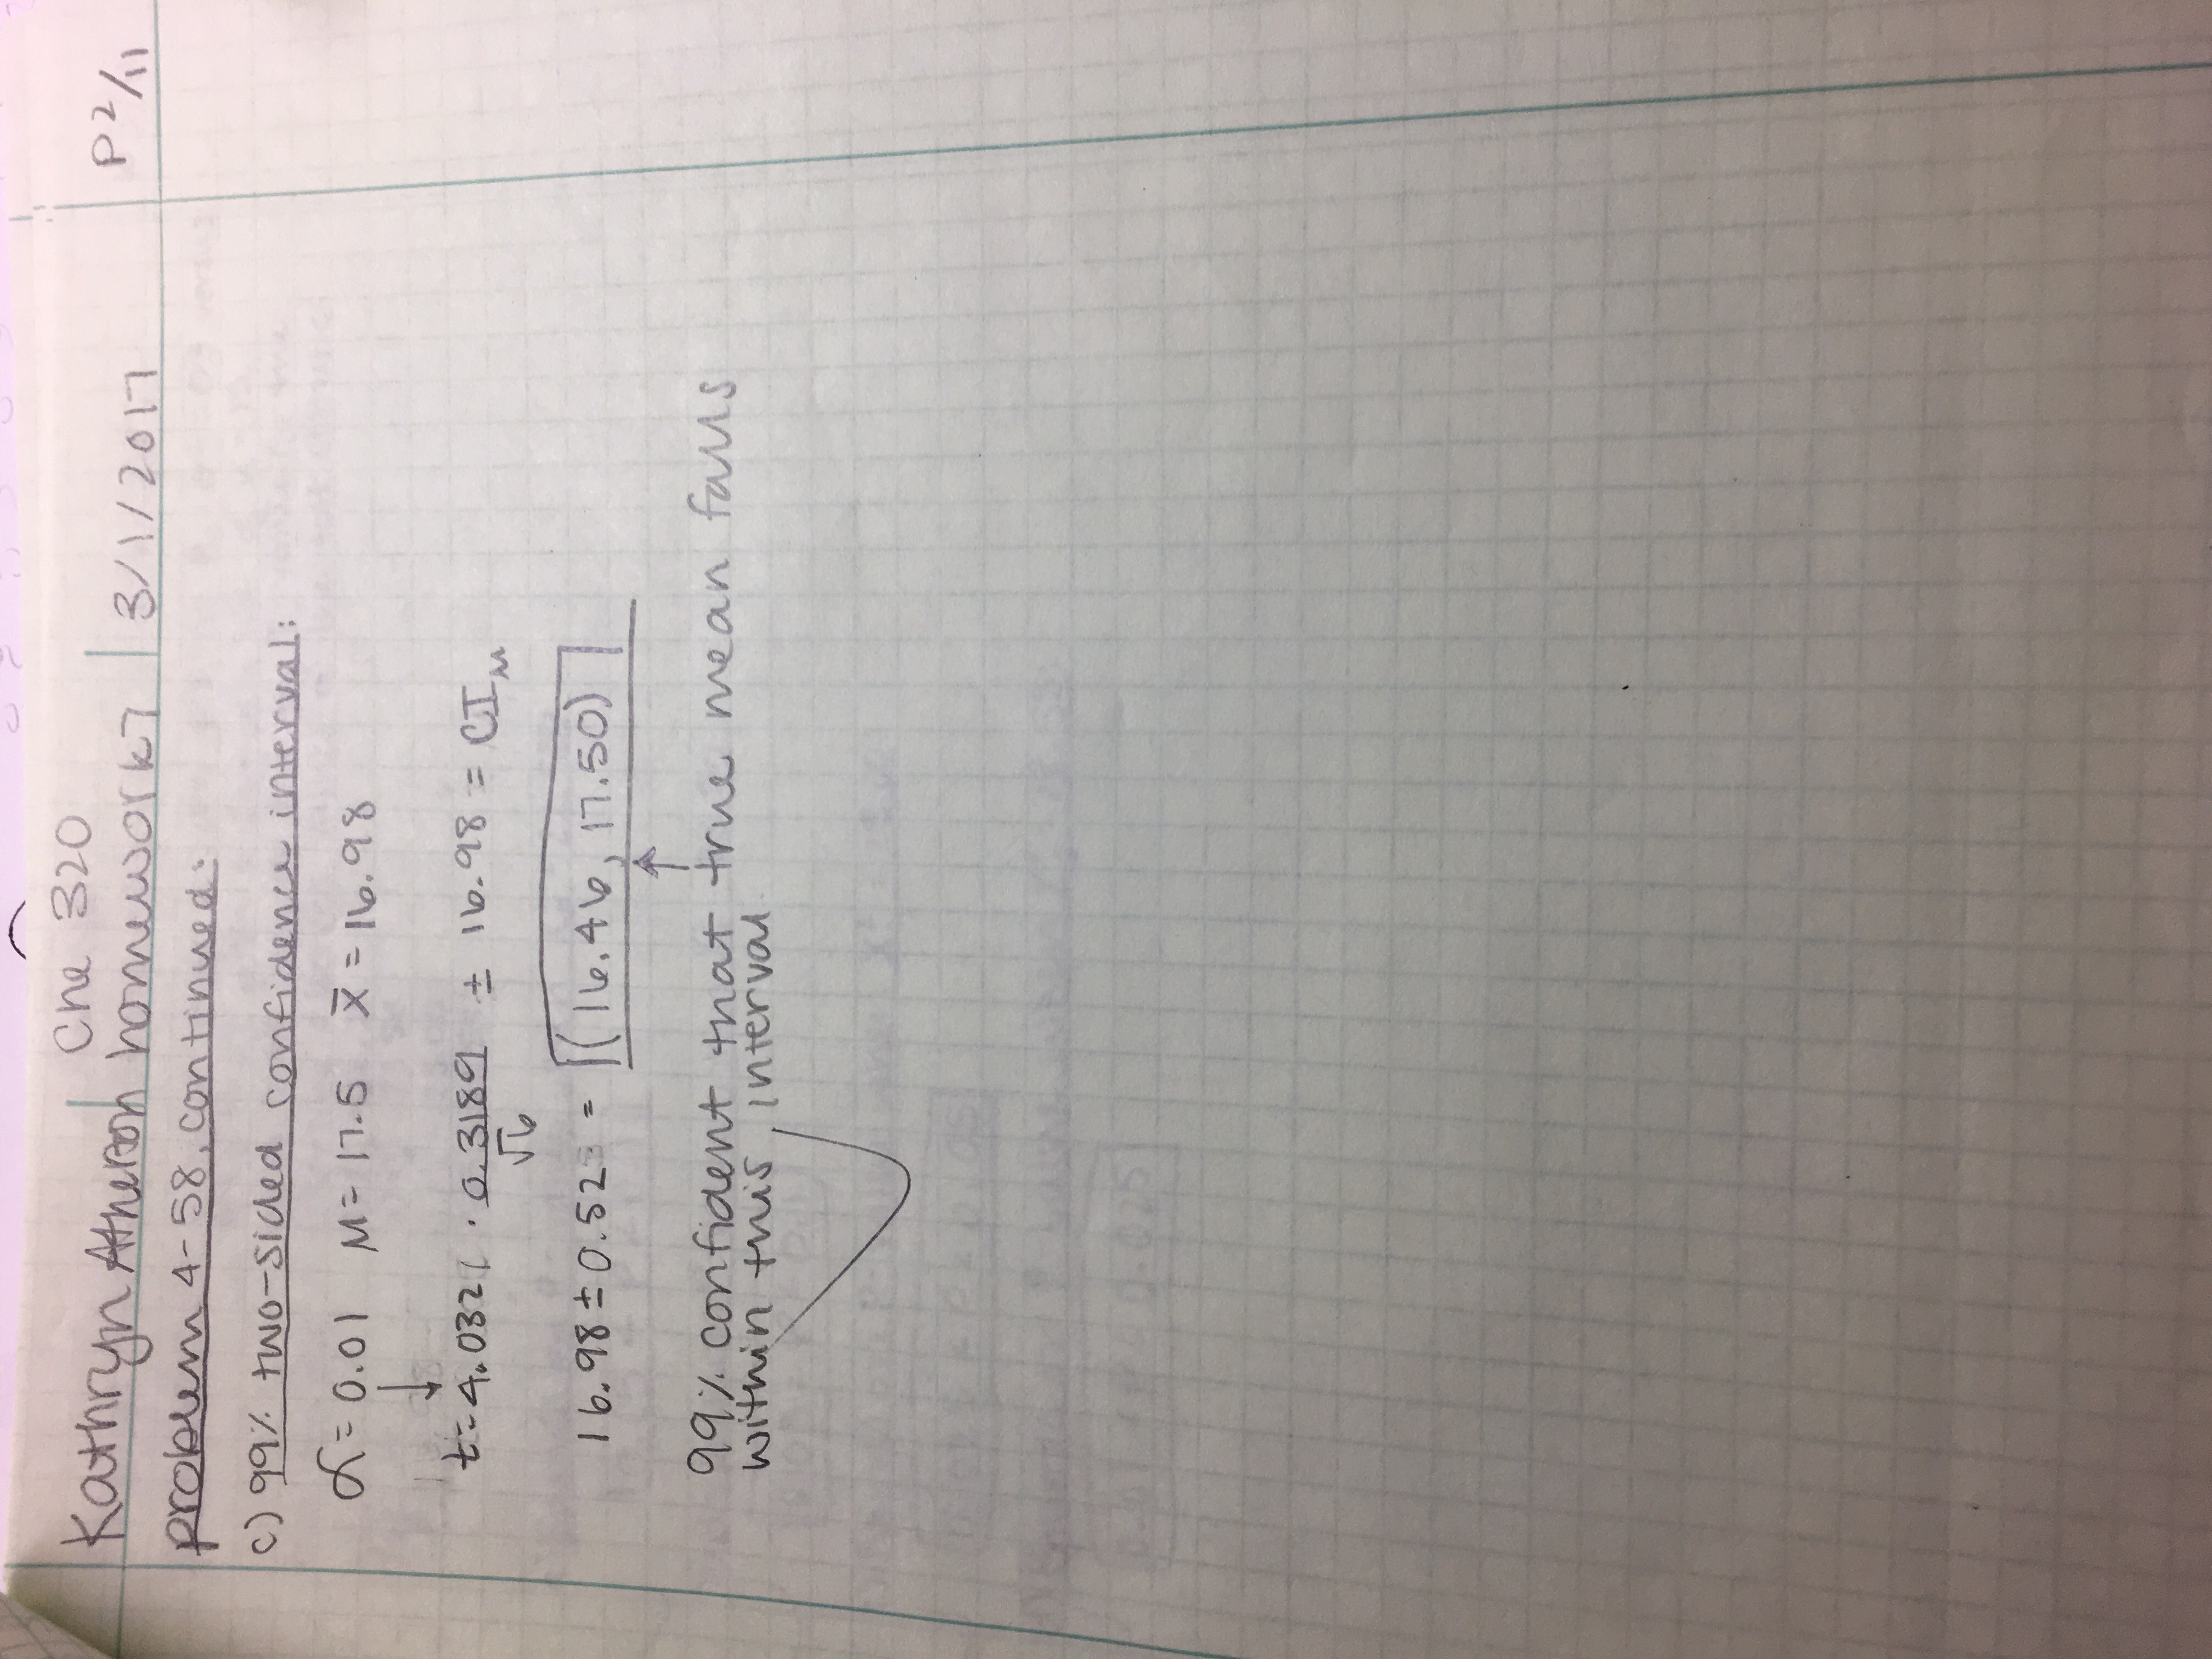 Che 320
Kathryn Atherton homework 7 3/1/2017 P 2/11
problem 4-58, continued:
c) 99% two-sided confidence interval:
α = 0.01 μ = 17.5 x̄ = 16.98
t = 4.0321 · 0.3189/√6 ± 16.98 = CI μ
16.98 ± 0.52 = (16.46, 17.50)
99% confident that true mean falls
within this interval